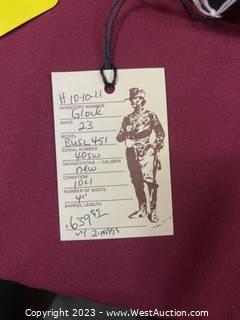 H 10-10-21
INVENTORY NUMBER
Glock
MAKE
23
MODEL
BUSL451
SERIAL NUMBER
40SW
GAUGE/CHOKE - CALIBER
new
CONDITION
10+1
NUMBER OF SHOTS
4"
BARREL LENGTH
$639.92
w/ 2-mags
Copyright 2023 - www.WestAuction.com